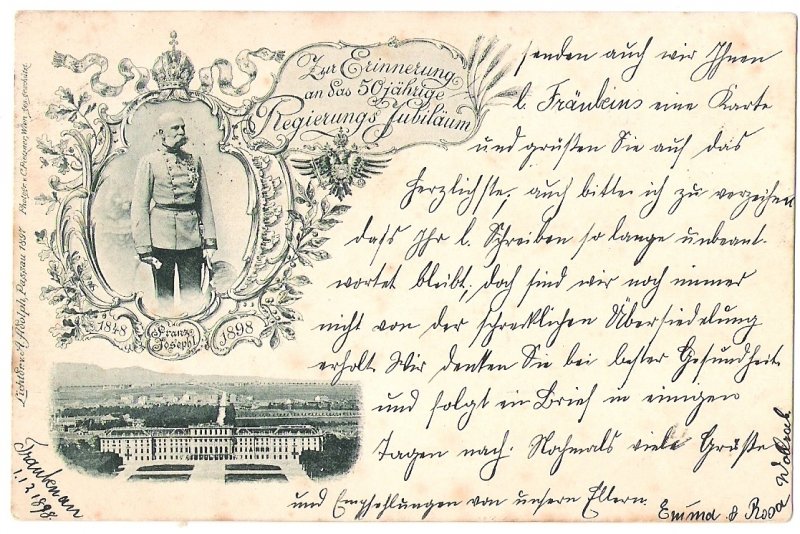 Zur Erinnerung
an das 50jährige
Regierungs Jubiläum
1848
Franz
Joseph I.
1898
Lichtdr. v. A. Adolph, Passau 1897
Photogr. v. C. Pietzner, Wien, Ges. geschützt.
senden auch wir Ihnen
l. Fräuleins eine Karte
und grüßen Sie auf das
Herzlichste, auch bitte ich zu verzeihen
dass Ihr l. Schreiben so lange unbeant-
wortet bleibt, doch sind wir noch immer
nicht von der schrecklichen Übersiedelung
erholt. Wir denken Sie bei bester Gesundheit
und folgt ein Brief in einigen
Tagen nach. Nochmals viele Grüße
und Empfehlungen von unsern Eltern.
Emma & Rosa
1898